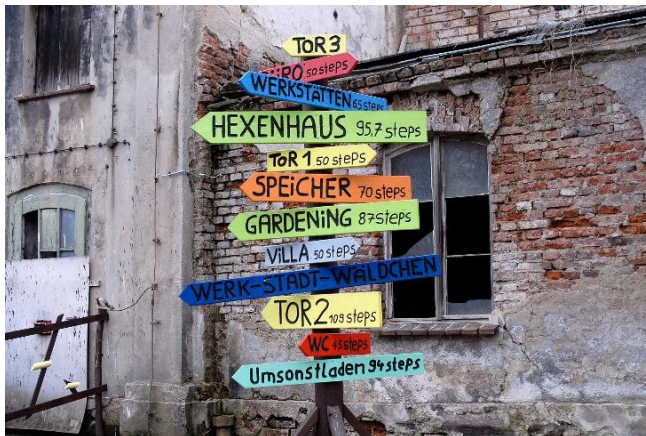 TOR 3
BÜRO 50 steps
WERKSTÄTTEN 65 steps
HEXENHAUS 95,7 steps
TOR 1 50 steps
SPEICHER 70 steps
GARDENING 87 steps
VILLA 50 steps
WERK-STADT-WÄLDCHEN
TOR 2 109 steps
WC 45 steps
Umsonstladen 94 steps